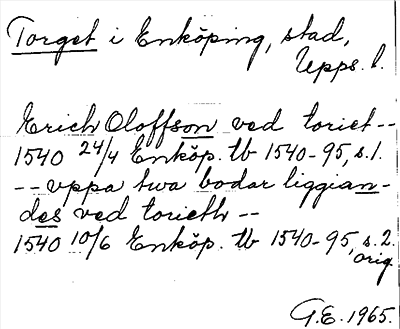 Torget i Enköping, stad,
Upps. l.
Erich Oloffson ved toriet --
1540 24/4 Enköp. tb 1540-95, s. 1.
-- uppa twa bodar liggian-
des ved torieth --
1540 10/6 Enköp. tb 1540-95, s. 2.
orig.
G.E. 1965.